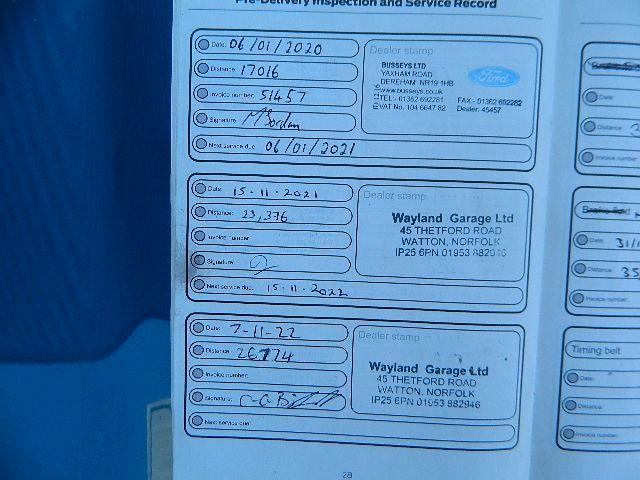 Pre-Delivery Inspection and Service Record
Date: 06/01/2020
Distance: 17016
Invoice number: 51457
Signature:
Next service due: 06/01/2021
Dealer stamp
BUSSEYS LTD
YAXHAM ROAD
DEREHAM NR19 1HB
www.busseys.co.uk
TEL:- 01362 692281 FAX:- 01362 692282
VAT No. 104 6647 82 Dealer: 45457
Ford
Date: 15-11-2021
Distance: 23,376
Invoice number:
Signature:
Next service due: 15-11-2022
Dealer stamp
Wayland Garage Ltd
45 THETFORD ROAD
WATTON, NORFOLK
IP25 6PN 01953 882946
Date: 7-11-22
Distance: 26174
Invoice number:
Signature:
Next service due:
Dealer stamp
Wayland Garage Ltd
45 THETFORD ROAD
WATTON, NORFOLK
IP25 6PN 01953 882946
28
Date:
Distance:
Invoice number
Date: 31/1
Distance: 35
Invoice number:
Timing belt
Date:
Distance:
Invoice number: